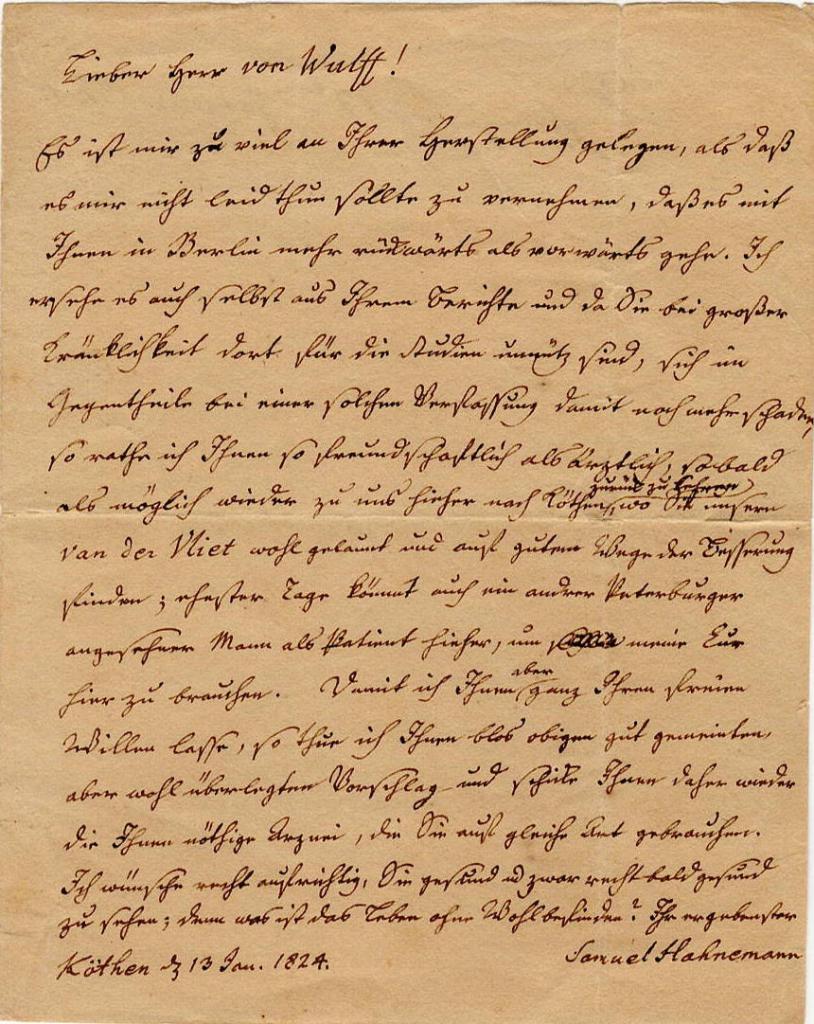 Lieber Herr von Wulff!
Es ist mir zu viel an Ihrer Herstellung gelegen, als daß
es mir nicht leid thun sollte zu vernehmen, daß es mit
Ihnen in Berlin mehr rückwärts als vorwärts gehe. Ich
ersehe es auch selbst aus Ihrem Berichte und da Sie bei großer
Kränklichkeit dort für die Studien unnütz sind, sich im
Gegentheile bei einer solchen Verfassung damit noch mehr schaden,
so rathe ich Ihnen so freundschaftlich als ärztlich, so bald
als möglich wieder zu uns hieher nach Köthen zurück zu kehren, wo Sie unsern
van der Vliet wohl gelaunt und auf gutem Wege der Besserung
finden; ehester Tage kömmt auch ein andrer Peterburger
angesehner Mann als Patient hieher, um meine Cur
hier zu brauchen. Damit ich Ihnen aber ganz Ihren freien
Willen lasse, so thue ich Ihnen blos obigen gut gemeinten,
aber wohl überlegten Vorschlag und schicke Ihnen daher wieder
die Ihnen nöthige Arznei, die Sie auf gleiche Art gebrauchen.
Ich wünsche recht aufrichtig, Sie gesund und zwar recht bald gesund
zu sehen; denn was ist das Leben ohne Wohlbefinden? Ihr ergebenster
Köthen d 13 Jan. 1824. Samuel Hahnemann